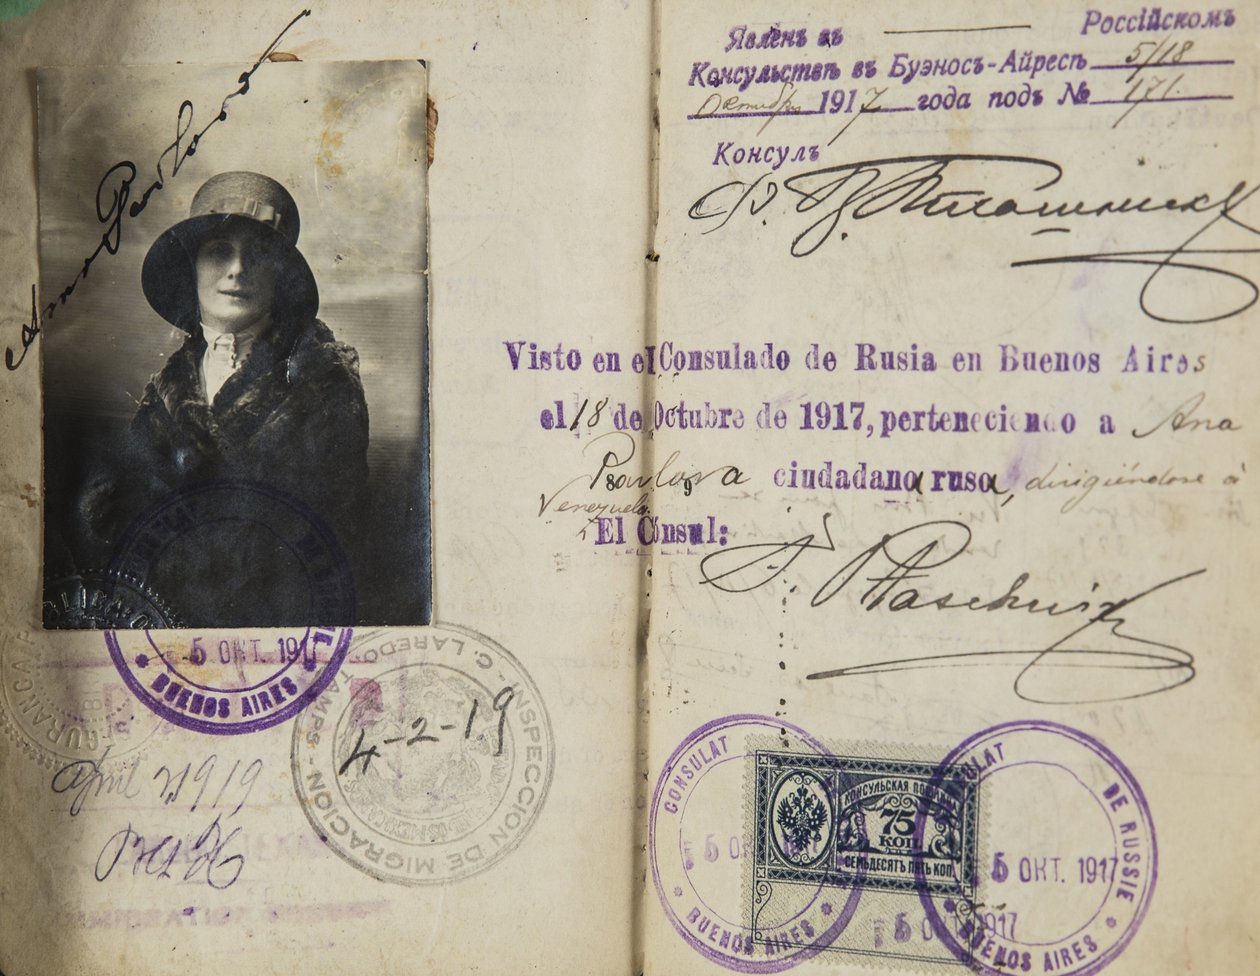 Anna Pavlova
5 ОКТ. 1917
BUENOS AIRES
C. LAREDO TAMPS.
INSPECCION DE MIGRACION
4-2-19
April 2 1919
Явленъ въ — Россійскомъ
Консульствѣ въ Буэносъ-Айресѣ 5/18
Октября 1917 года подъ № 171.
Консулъ
Visto en el Consulado de Rusia en Buenos Aires
el 18 de Octubre de 1917, perteneciendo a Ana
Pavlova ciudadana rusa, dirigiéndose á
Venezuela.
El Cónsul:
89
CONSULAT
5 ОК
BUENOS AIRES
КОНСУЛЬСКАЯ ПОШЛИНА
75
КОП
СЕМЬДЕСЯТЪ ПЯТЬ КОП.
CONSULAT DE RUSSIE
5 ОКТ. 1917
BUENOS AIRES
5 ОКТ 1917